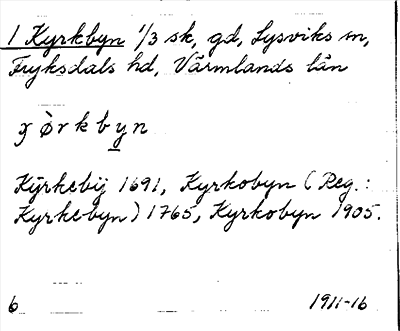 1 Kyrkbyn 1/3 sk, gd, Lysviks sn,
Fryksdals hd, Värmlands län
ɣ ò r k b y n
Kÿrkebÿ 1691, Kyrkobyn (Reg.:
Kyrkebyn) 1765, Kyrkobyn 1905.
6 1911-16